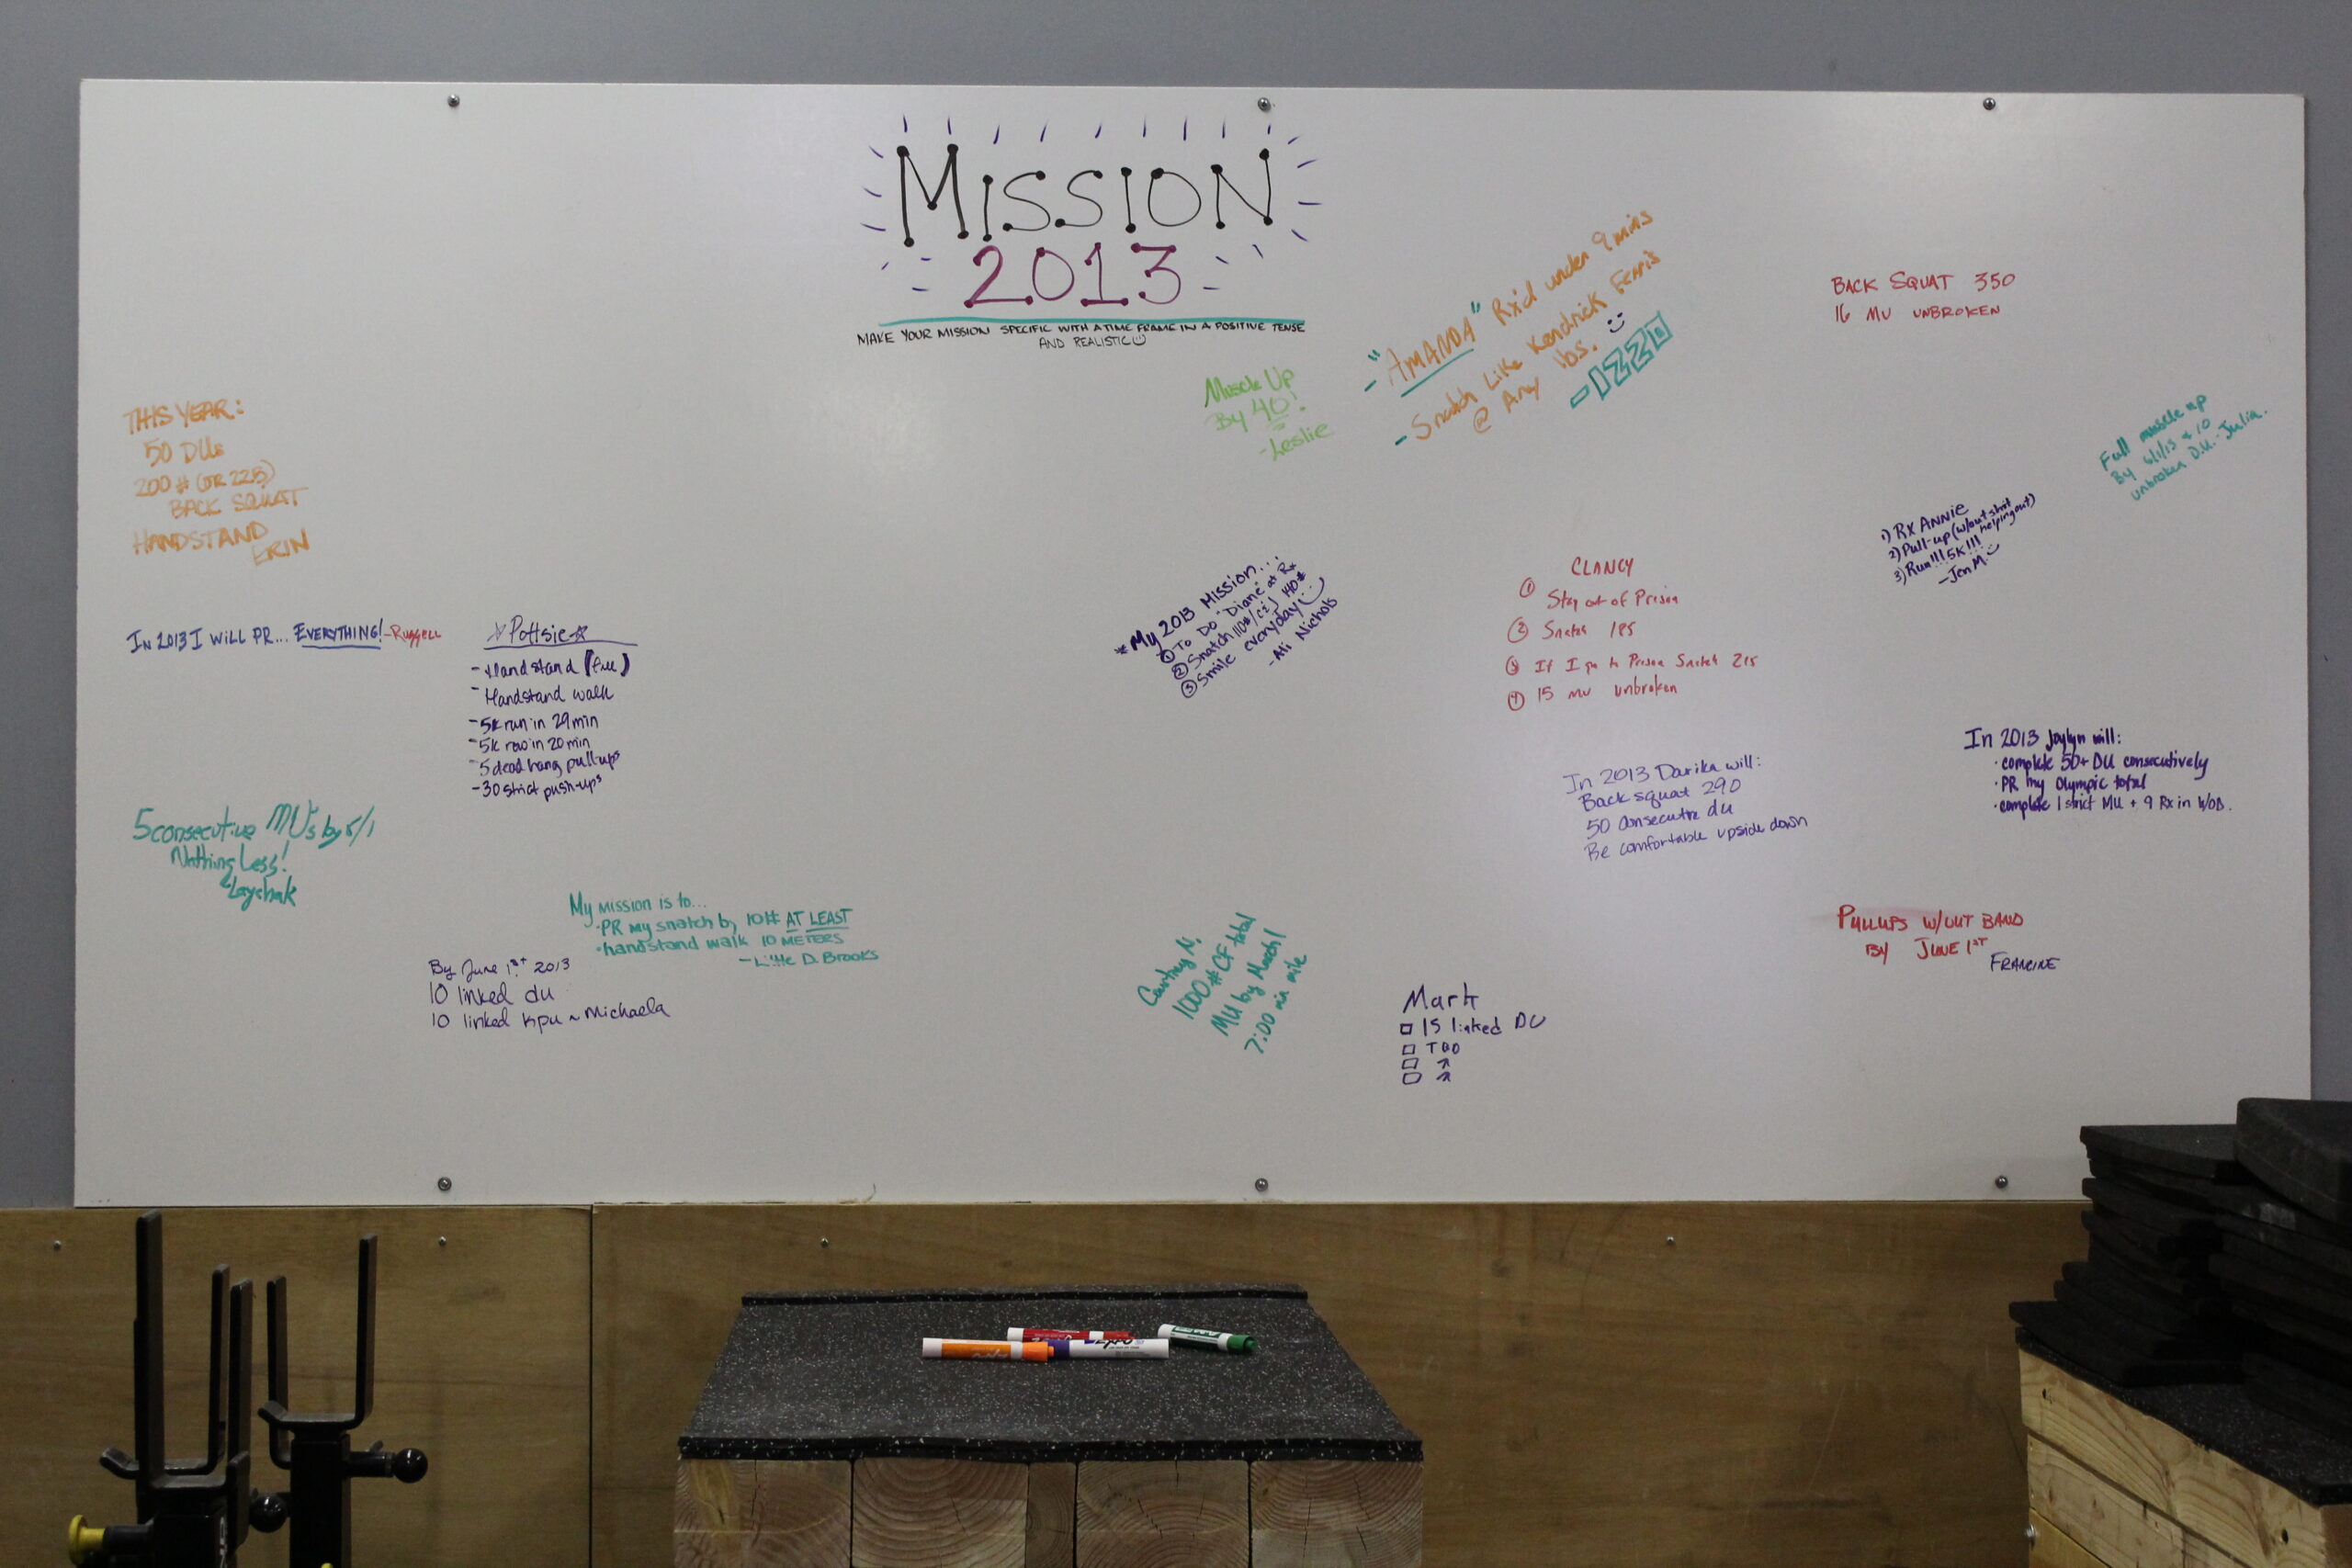 MISSION
2013
MAKE YOUR MISSION SPECIFIC WITH A TIME FRAME IN A POSITIVE TENSE
AND REALISTIC
THIS YEAR:
50 DUs
200# (OR 225)
BACK SQUAT
HANDSTAND
ERIN
IN 2013 I WILL PR... EVERYTHING! -RUSSELL
Pottsie
-Handstand (free)
-Handstand walk
-5k run in 29min
-5k row in 20min
-5 dead hang pull-ups
-30 strict push-ups
5 consecutive MU's by 5/1
Nothing Less!
Laychak
My MISSION is to...
·PR my snatch by 10# AT LEAST
·handstand walk 10 METERS
-Little D. Brooks
By June 1st 2013
10 linked du
10 linked kpu ~ Michaela
Muscle Up
By 40!
-Leslie
-"AMANDA" Rx'd under 9 mins
-Snatch Like Kendrick Ferris
@ Any lbs.
-IZZO
BACK SQUAT 350
16 MU UNBROKEN
Full muscle up
By 6/1/13 + 10
unbroken D.U. -Julia.
1) RX ANNIE
2) Pull-up (w/out shirt helping out)
3) Run!!! 5K!!!
-Jen M.
*My 2013 Mission...
① To Do "Diane" at Rx
② Snatch 110#/C+J 140#
③ Smile everyday!
-Ali Nichols
CLANCY
① Stay out of Prison
② Snatch 185
③ If I go to Prison Snatch 215
④ 15 mu unbroken
In 2013 Darika will:
Back squat 290
50 consecutive du
Be comfortable upside down
In 2013 Jaylyn will:
·complete 50+ DU consecutively
·PR my Olympic total
·complete 1 strict MU + 9 Rx in WOD.
PULLUPS W/OUT BAND
BY JUNE 1ST
FRANCINE
Courtney N.
1000# CF total
MU by March 1
7:00 min mile
Mark
15 linked DU
TBD
EXPO